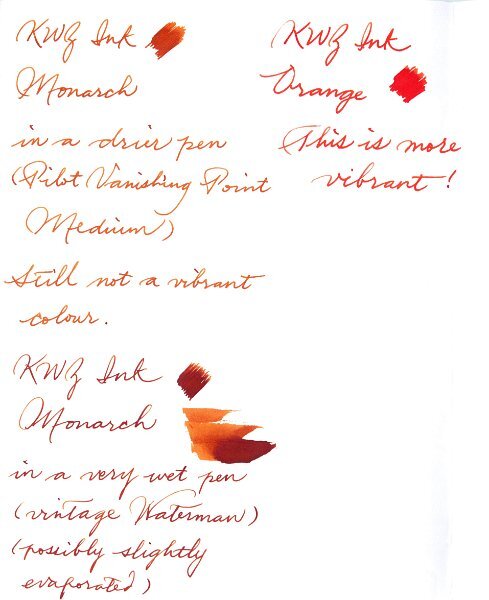 KWZ Ink
Monarch
in a drier pen
(Pilot Vanishing Point
Medium)
Still not a vibrant
colour.
KWZ Ink
Monarch
in a very wet pen
(vintage Waterman)
(possibly slightly
evaporated)
KWZ Ink
Orange
This is more
vibrant!